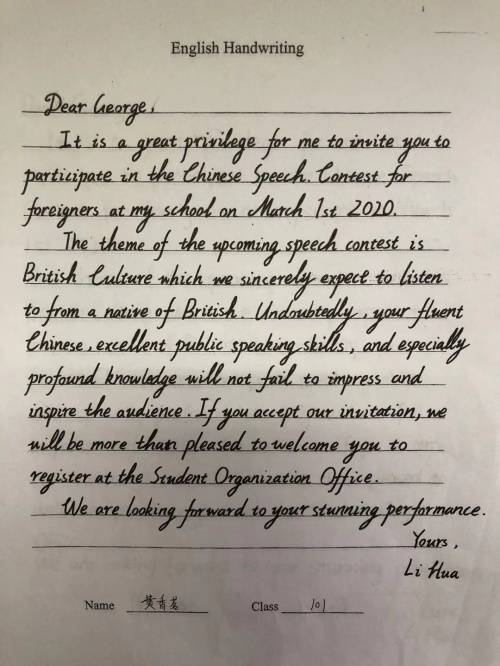 English Handwriting
Dear George,
It is a great privilege for me to invite you to
participate in the Chinese Speech. Contest for
foreigners at my school on March 1st 2020.
The theme of the upcoming speech contest is
British Culture which we sincerely expect to listen
to from a native of British. Undoubtedly, your fluent
Chinese, excellent public speaking skills, and especially
profound knowledge will not fail to impress and
inspire the audience. If you accept our invitation, we
will be more than pleased to welcome you to
register at the Student Organization Office.
We are looking forward to your stunning performance.
Yours,
Li Hua
Name 黄香 Class 101